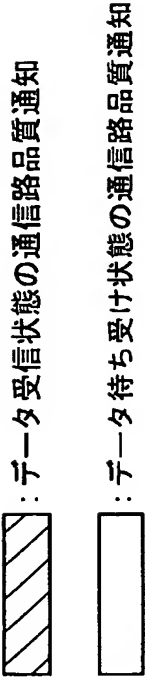 ：データ受信状態の通信路品質通知
：データ待ち受け状態の通信路品質通知